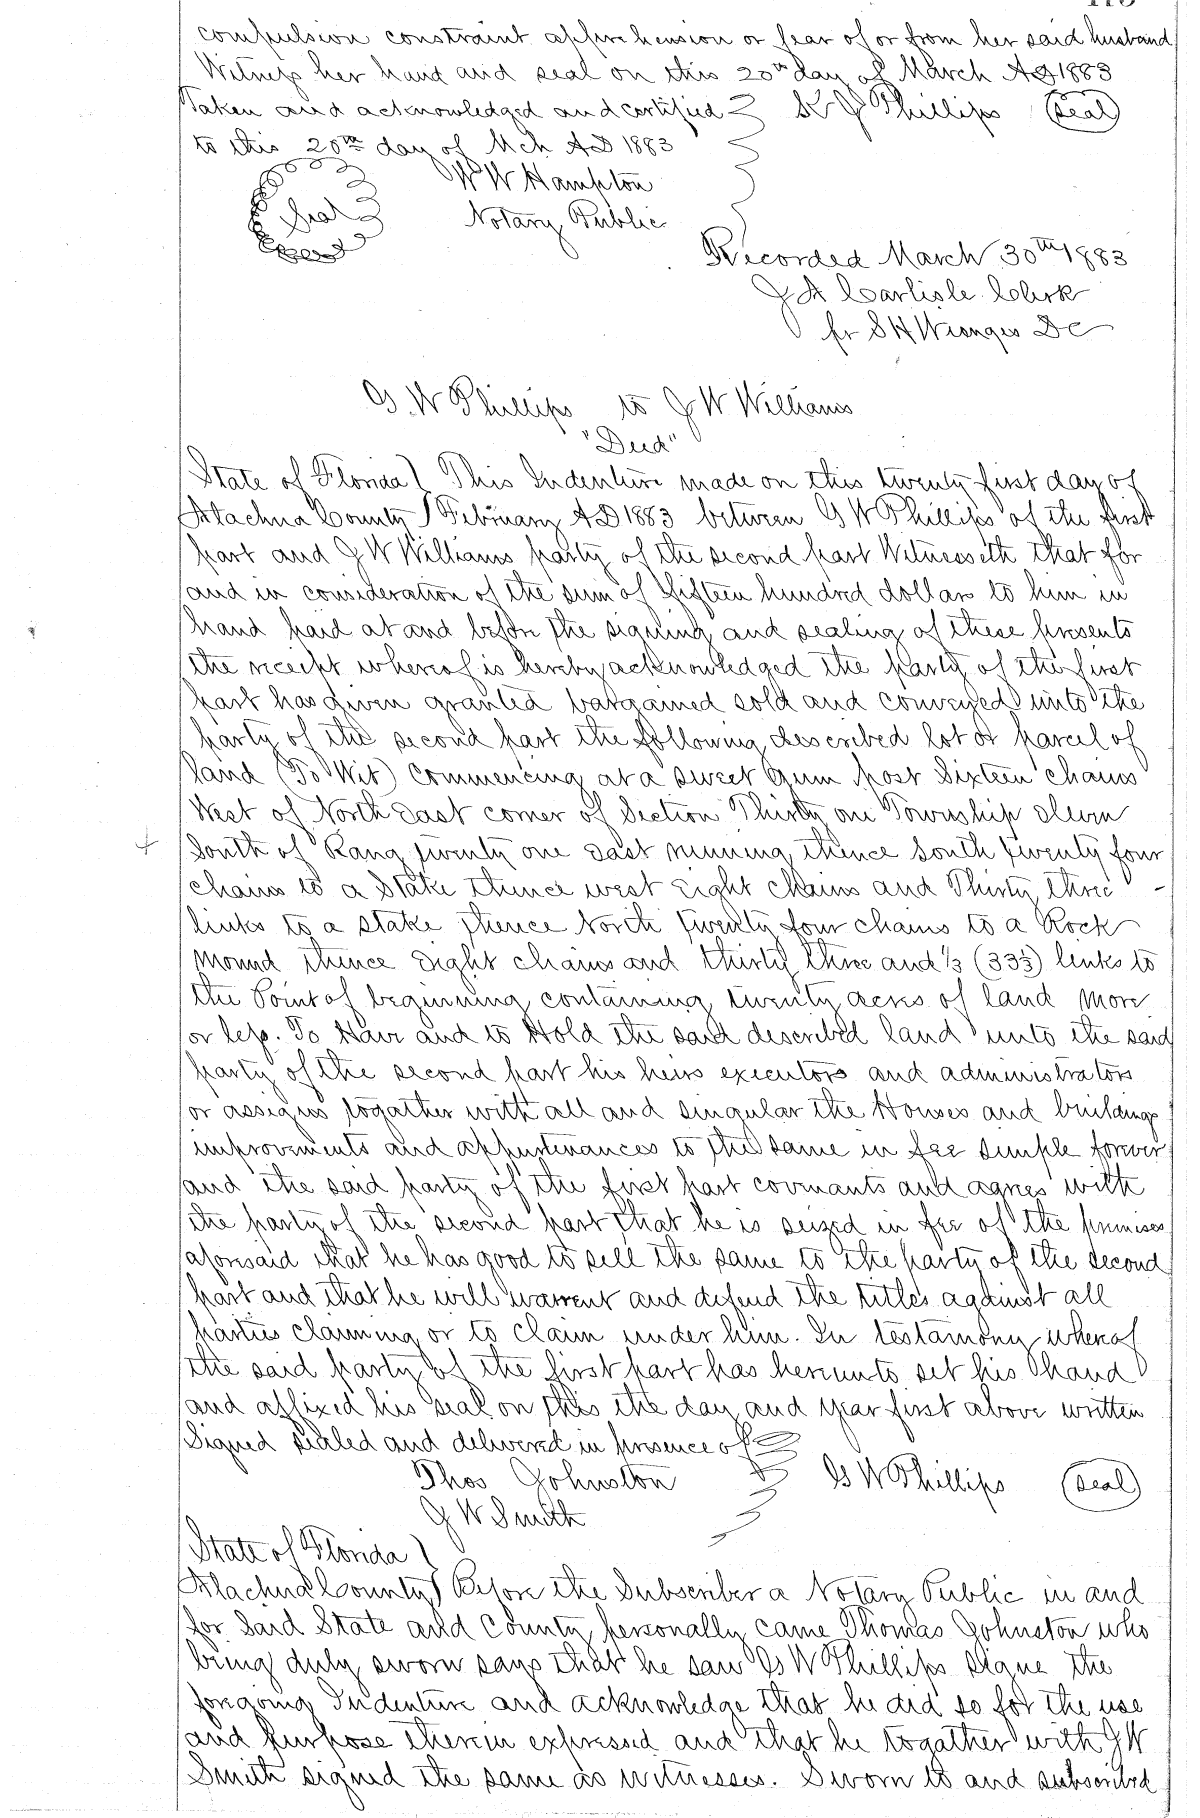 compulsion constraint apprehension or fear of or from her said husband
Witness her hand and seal on this 20th day of March AD 1883
Taken and acknowledged and certified Phillips (Seal)
to this 20th day of Mch AD 1883
W W Hampton
Seal
Notary Public
Recorded March 30th 1883
J A Carlisle Clerk
fr S H Wienges DC
G. W Phillips to J W Williams
"Deed"
State of Florida } This Indenture made on this twenty first day of
Alachua County } February AD 1883 between G W Phillips of the first
part and J W Williams party of the second part Witnesseth that for
and in consideration of the sum of fifteen hundred dollars to him in
hand paid at and before the signing and sealing of these presents
the receipt whereof is hereby acknowledged the party of the first
part has given granted bargained sold and conveyed unto the
party of the second part the following described lot or parcel of
land (To Wit) Commencing at a sweet gum post Sixteen chains
West of North East corner of Section Thirty one Township eleven
South of Rang twenty one east running thence South twenty four
chains to a Stake thence west eight chains and Thirty three
links to a stake thence North twenty four chains to a Rock
Mound thence eight chains and thirty three and 1/3 (33 1/3) links to
the Point of beginning containing twenty acres of land more
or less. To Have and to Hold the said described land unto the said
party of the second part his heirs executors and administrators
or assigns togather with all and singular the Houses and buildings
improvements and appurtenances to the same in fee simple forever
and the said party of the first part covenants and agrees with
the party of the second part that he is seized in fee of the premises
aforesaid that he has good to sell the same to the party of the second
part and that he will warrent and defend the titles against all
parties claiming or to claim under him. In testamony whereof
the said party of the first part has hereunto set his hand
and affixed his seal on this the day and year first above written
Signed sealed and delivered in presence of
Thos Johnston G W Phillips (Seal)
J W Smith
State of Florida }
Alachua County } Before the Subscriber a Notary Public in and
for Said State and County personally came Thomas Johnston who
being duly sworn says that he saw G W Phillips signe the
foregoing Indenture and acknowledge that he did so for the use
and purpose therein expressed and that he togather with J W
Smith signed the same as witnesses. Sworn to and subscribed